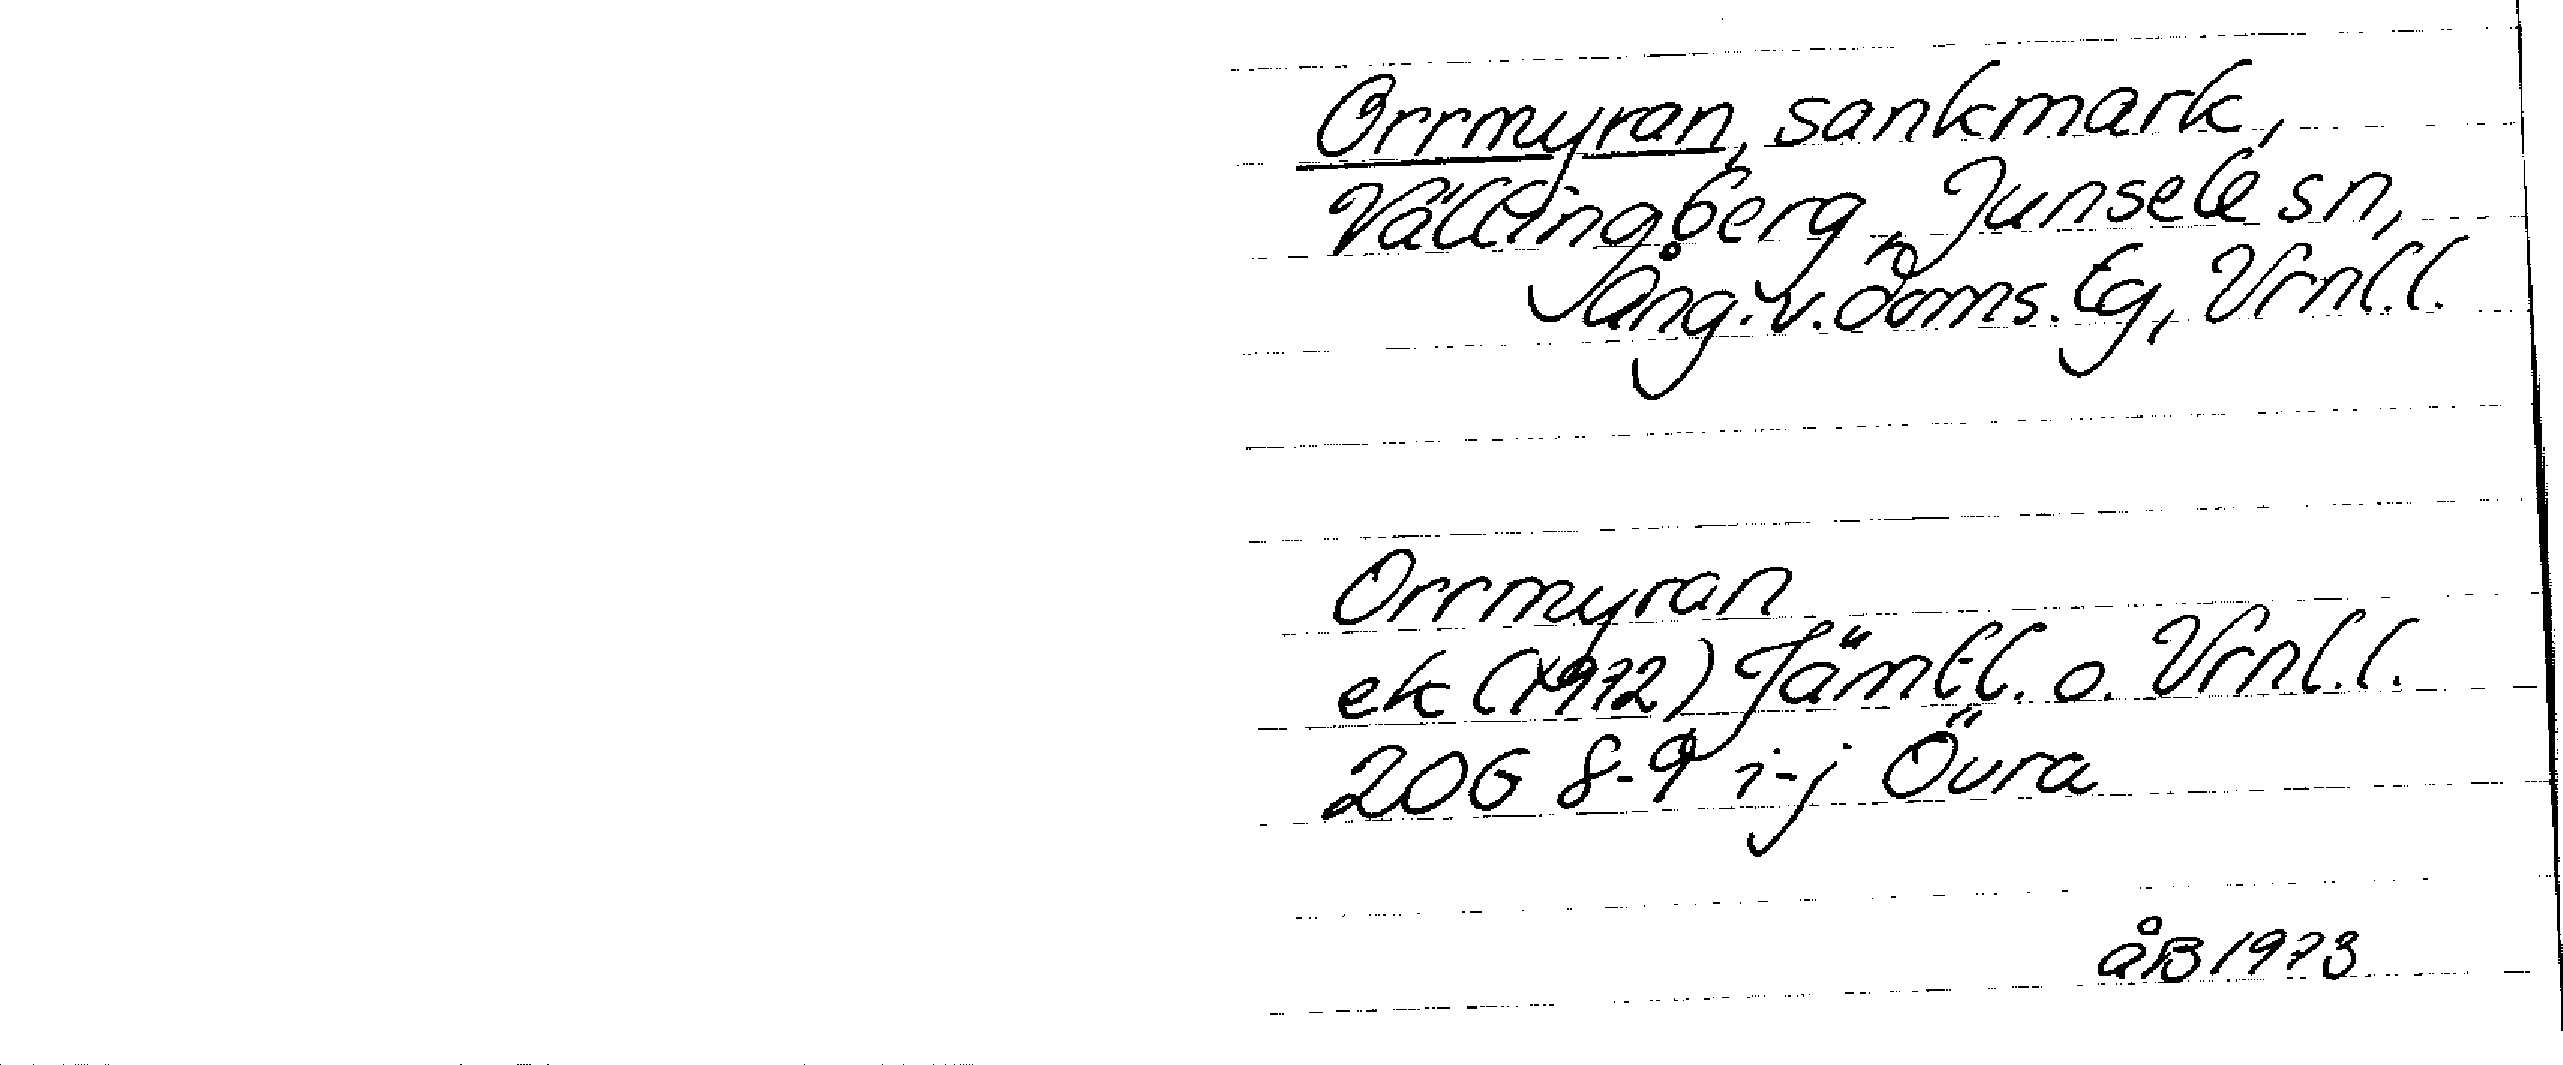 Orrmyran, sankmark,
Vällingberg, Junsele sn,
Ång. v. doms. tg, Vrnl.l.
Orrmyran
ek (1972) Jämtl. o. Vrnl.l.
20G 8-9 i-j Övra
åB 1973